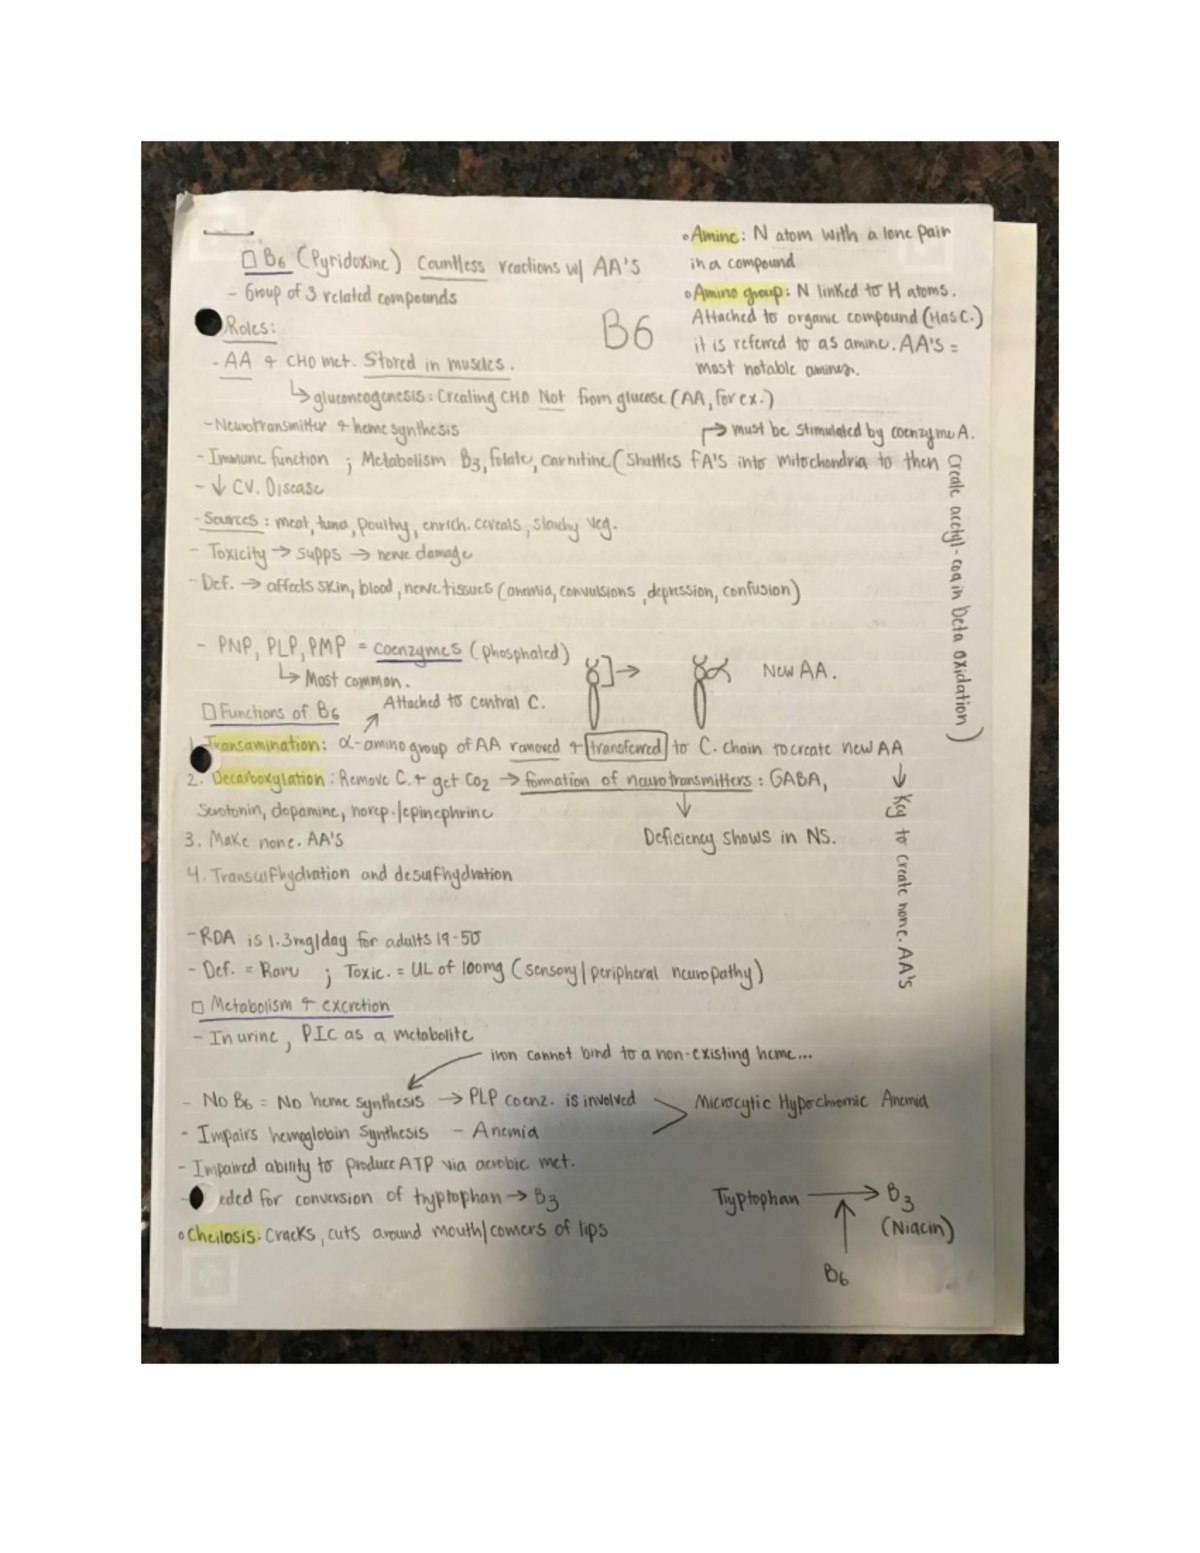 □ B6 (Pyridoxine) Countless reactions w/ AA's
- Group of 3 related compounds
B6
• Amine: N atom with a lone pair
in a compound
• Amino group: N linked to H atoms.
Attached to organic compound (Has C.)
it is referred to as amine. AA's =
most notable amines.
Roles:
- AA + CHO met. Stored in muscles.
↳ gluconeogenesis: Creating CHO Not from glucose (AA, for ex.)
- Neurotransmitter + heme synthesis
→ must be stimulated by coenzyme A.
- Immune function ; Metabolism B3, folate, carnitine (Shuttles FA's into mitochondria to then
create acetyl-coa in beta oxidation)
- ↓ CV. Disease
- Sources: meat, tuna, poultry, enrich. cereals, starchy veg.
- Toxicity → supps → nerve damage
- Def. → affects skin, blood, nerve tissues (anemia, convulsions, depression, confusion)
- PNP, PLP, PMP = coenzymes (phosphated)
↳ Most common.
New AA.
□ Functions of B6
Attached to central C.
1. Transamination: α-amino group of AA removed + transferred to C. chain to create new AA
↓ Key to create none. AA's
2. Decarboxylation: Remove C. + get CO2 → formation of neurotransmitters: GABA,
Serotonin, dopamine, norep./epinephrine
↓ Deficiency shows in NS.
3. Make none. AA's
4. Transulfhydration and desulfhydration
- RDA is 1.3mg/day for adults 19-50
- Def. = Rare ; Toxic. = UL of 100mg (sensory/peripheral neuropathy)
□ Metabolism + excretion
- In urine, PIC as a metabolite
iron cannot bind to a non-existing heme...
- No B6 = No heme synthesis → PLP coenz. is involved
Microcytic Hypochromic Anemia
- Impairs hemoglobin synthesis - Anemia
- Impaired ability to produce ATP via aerobic met.
- eded for conversion of tryptophan → B3
Tryptophan → B3
(Niacin)
↑
B6
• Cheilosis: Cracks, cuts around mouth/corners of lips